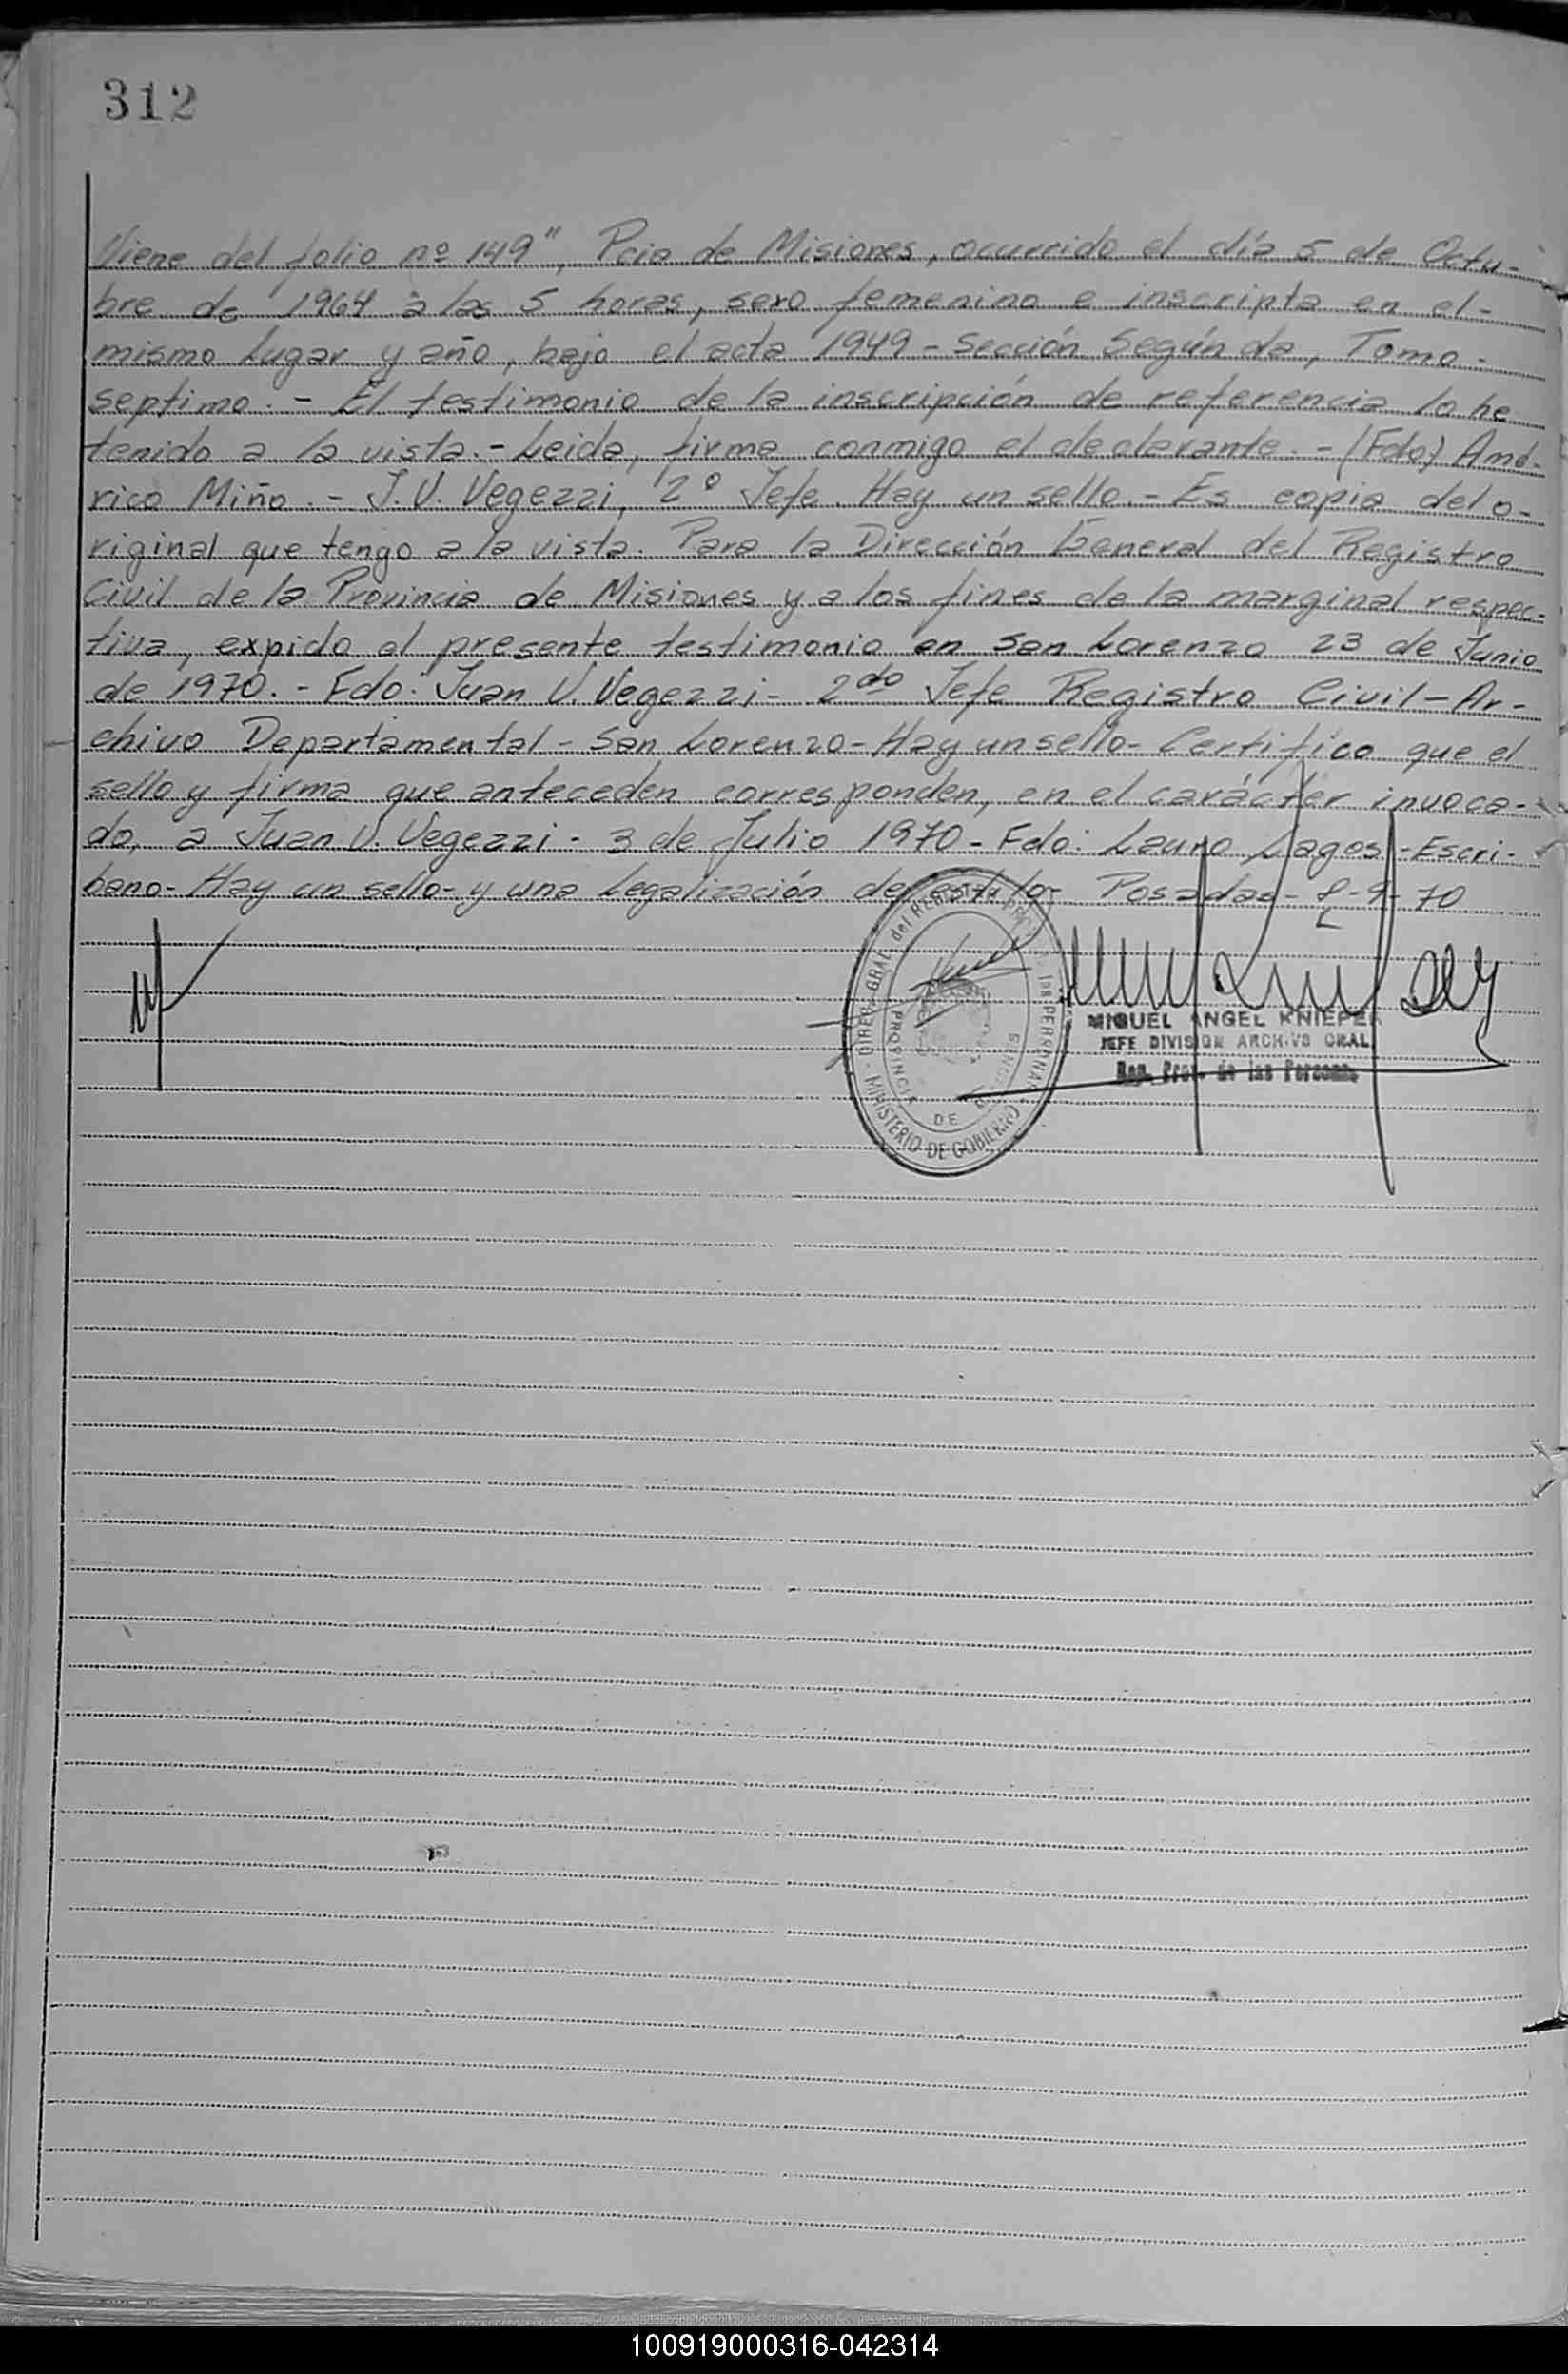 312
Viene del folio nº 149", Pcia de Misiones, ocurrido el día 5 de Octu-
bre de 1964 a las 5 horas, sexo femenino e inscripta en el-
mismo lugar y año, bajo el acta 1949 - Sección Segúnda, Tomo-
septimo. - El testimonio de la inscripción de referencia lo he
tenido a la vista. - Leida, firma conmigo el declarante. - (Fdo) Amé-
rico Miño. - J. V. Vegezzi, 2º Jefe. Hay un sello. - Es copia del o-
riginal que tengo a la vista. Para la Dirección General del Registro
Civil de la Provincia de Misiones y a los fines de la marginal respec-
tiva, expido el presente testimonio en San Lorenzo 23 de Junio
de 1970. - Fdo: Juan V. Vegezzi - 2do Jefe Registro Civil - Ar-
chivo Departamental - San Lorenzo - Hay un sello - Certifico que el
sello y firma que anteceden corresponden, en el carácter invoca-
do, a Juan V. Vegezzi - 3 de Julio 1970 - Fdo: Lauro Lagos - Escri-
bano - Hay un sello - y una legalización de Posadas - 8-9-70
DIREC. GRAL. del REG. PROV. de las PERSONAS
PROVINCIA DE MISIONES
MINISTERIO DE GOBIERNO
MIGUEL ANGEL KNIEPER
JEFE DIVISION ARCHIVO GRAL
Reg. Prov. de las Personas
100919000316-042314